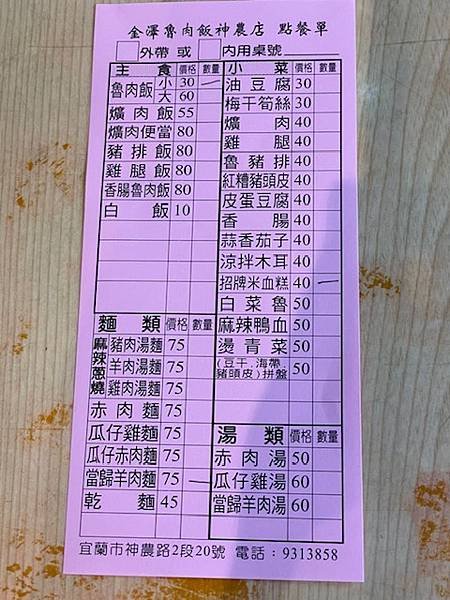 金澤魯肉飯神農店 點餐單
□外帶 或 □內用桌號
主食 價格 數量
魯肉飯 小 30 一
大 60
爌肉飯 55
爌肉便當 80
豬排飯 80
雞腿飯 80
香腸魯肉飯 80
白飯 10
麵類 價格 數量
麻辣蔥燒 豬肉湯麵 75
羊肉湯麵 75
雞肉湯麵 75
赤肉麵 75
瓜仔雞麵 75
瓜仔赤肉麵 75
當歸羊肉麵 75 一
乾麵 45
小菜 價格 數量
油豆腐 30
梅干筍絲 30
爌肉 40
雞腿 40
魯豬排 40
紅糟豬頭皮 40
皮蛋豆腐 40
香腸 40
蒜香茄子 40
涼拌木耳 40
招牌米血糕 40 一
白菜魯 50
麻辣鴨血 50
燙青菜 50
(豆干.海帶.豬頭皮)拼盤 50
湯類 價格 數量
赤肉湯 50
瓜仔雞湯 60
當歸羊肉湯 60
宜蘭市神農路2段20號 電話：9313858